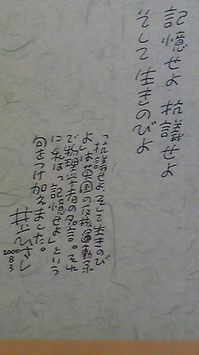 記憶せよ 抗議せよ
そして 生きのびよ
「抗議せよそして生きのび
よ」は英国の反核運動家
で物理学者の名言。それ
に私は「記憶せよ」という
句をつけ加えました。
井上ひさし
2000
8
3